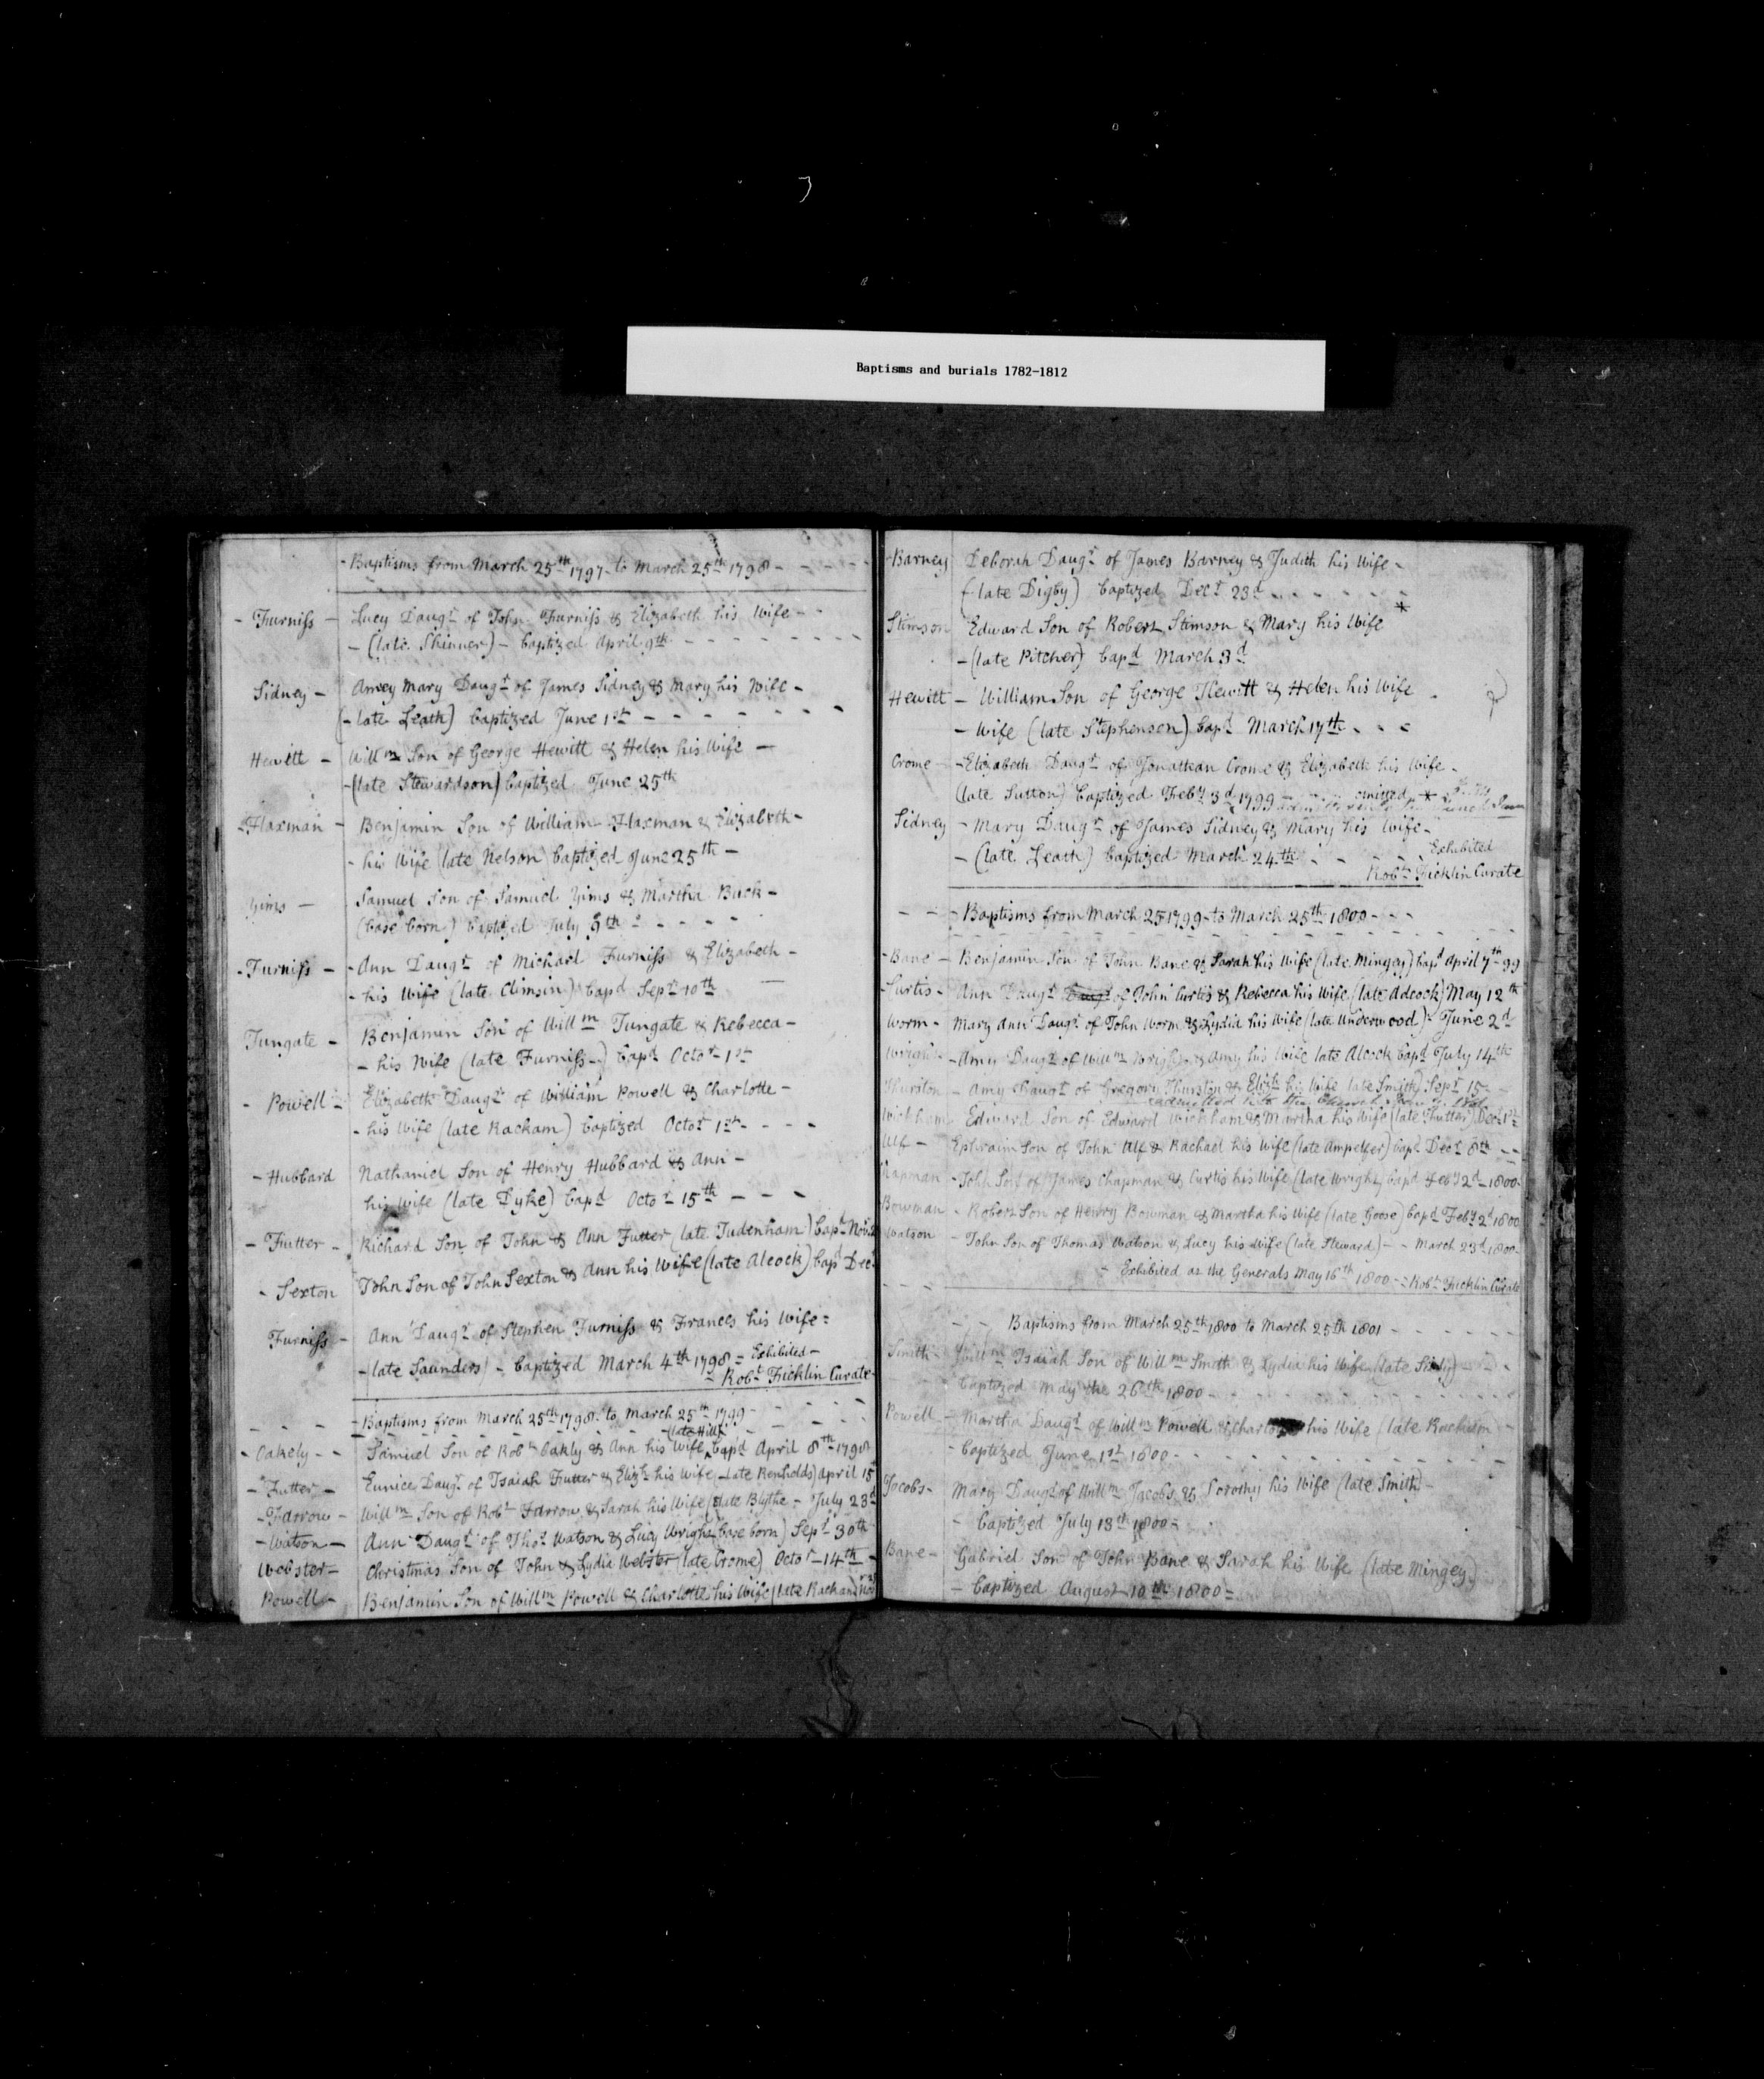 Baptisms and burials 1782-1812
- Baptisms from March 25th 1797 - to March 25th 1798 - - - - -
- Furniss - Lucy Daugr of John Furniss & Elizabeth his Wife - -
- (late Skinner) - baptized April 9th - - - - - - - -
Sidney - Amey Mary Daugr of James Sidney & Mary his Wife -
(- late Leath) baptized June 1st - - - - - - -
Hewitt - Willm Son of George Hewitt & Helen his Wife -
- (late Stewardson) baptized June 25th
- Flaxman - Benjamin Son of William Flaxman & Elizabeth -
- his Wife (late Nelson) baptized June 25th -
Yims - Samuel Son of Samuel Yims & Martha Buck -
(base born) baptized July 9th - - - - -
- Furniss - - Ann Daugr of Michael Furniss & Elizabeth -
- his Wife (late Climsin) bapd Sepr 10th -
Tungate - Benjamin Son of Willm Tungate & Rebecca -
- his Wife (late Furniss -) bapd Octor 1st
- Powell - Elizabeth Daugr of William Powell & Charlotte -
- his Wife (late Racham) baptized Octor 1st - - - -
- Hubbard Nathaniel Son of Henry Hubbard & Ann -
his Wife (late Dyke) bapd Octor 15th - - -
- Futter - Richard Son of John & Ann Futter (late Tudenham) bapd Novr
- Sexton John Son of John Sexton & Ann his Wife (late Alcock) bapd Decr
Furniss - Ann Daugr of Stephen Furniss & Frances his Wife =
- (late Saunders) - baptized March 4th 1798 = Exhibited -
- Robt Ficklin Curate
- - - - Baptisms from March 25th 1798 to March 25th 1799 - - - -
(late Hill)
- Oakely - - Samuel Son of Robt Oakly & Ann his Wife ^ bapd April 8th 1798
- Futter - Eunice Daugr of Isaiah Futter & Elizh his Wife (late Renholds) April 15
- Farrow - Willm Son of Robt Farrow & Sarah his Wife (late Blythe - July 23d
- Watson - Ann Daugr of Thos Watson & Lucy Wright (base born) Sepr 30th
Webster - Christmas Son of John & Lydia Webster (late Crome) Octor - 14th -
Powell - Benjamin Son of Willm Powell & Charlotte his Wife (late Racham) Nov
- Barney Deborah Daugr of James Barney & Judith his Wife -
(- late Digby) baptized Decr 23d - - - - -
Stimson Edward Son of Robert Stimson & Mary his Wife *
- (late Pitcher) bapd March 3d
Hewitt - William Son of George Hewitt & Helen his Wife -
- Wife (late Stephenson) bapd March 17th - - =
Crome - - Elizabeth Daugr of Jonathan Crome & Elizabeth his Wife -
(late Sutton) baptized Feby 3d 1799 - omitted *
Sidney - Mary Daugr of James Sidney & Mary his Wife -
- (late Leath) baptized March 24th - - - - Exhibited
Robt Ficklin Curate
- - - Baptisms from March 25 1799 - to March 25th 1800 - - -
- Bane - Benjamin Son of John Bane & Sarah his Wife (late Mingey) bapd April 7th 99
- Curtis - Ann Daugr Daugr of John Curtis & Rebecca his Wife (late Adcock) May 12th
Worm - Mary Ann Daugr of John Worm & Lydia his Wife (late Underwood) - June 2d
Wright - Amy Daugr of Willm Wright & Amy his Wife late Alcock bapd July 14th
Thurston - Amy Daugr of Gregory Thurston & Elizh his Wife late Smith) Sepr 15 -
Wickham - Edward Son of Edward Wickham & Martha his Wife (late Futter) Decr 1st
Ulf - Ephraim Son of John Ulf & Rachael his Wife (late Ampelfer) bapd Decr 8th - -
Chapman - John Son of James Chapman & Curtis his Wife (late Wright) bapd Feby 2d - 1800 -
Bowman - Robert Son of Henry Bowman & Martha his Wife (late Goose) bapd Feby 2d 1800
Watson - John Son of Thomas Watson & Lucy his Wife (late Steward) - - March 23d 1800 -
- Exhibited at the Generals May 16th 1800 - - Robt Ficklin Curate
- - Baptisms from March 25th 1800 to March 25th 1801 - - - - -
Smith - Willm Isaiah Son of Willm Smith & Lydia his Wife (late - -
baptized May the 26th 1800 - - - - - -
Powell - Martha Daugr of Willm Powell & Charlotte his Wife (late Racham -
- baptized June 1st 1800 - - - - - -
Jacobs - Mary Daugr of Willm Jacobs & Dorothy his Wife (late Smith) -
- baptized July 13th 1800 =
Bane - Gabriel Son of John Bane & Sarah his Wife (late Mingey)
- baptized August 10th 1800 =